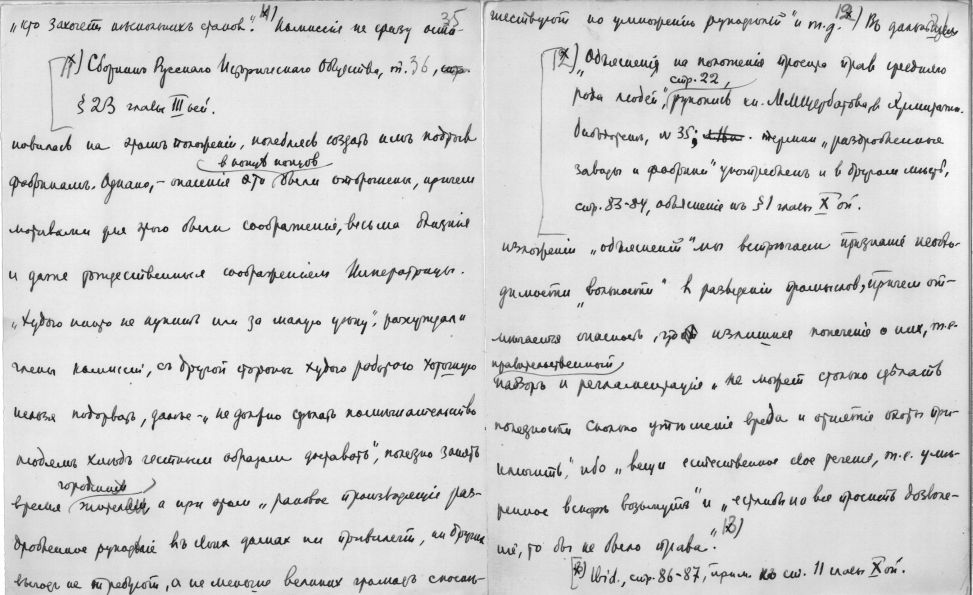 35
„кто захочетъ полотняныхъ становъ“. 1) Комиссія не сразу оста-
1) Сборникъ Русскаго Историческаго Общества, т. 36,
§ 23 главы III ьей.
новилась на этомъ положеніи, колеблясь создать имъ подрывъ
въ концѣ концовъ
фабрикамъ. Однако, – опасенія были отторжены, причемъ
мотивами для этого были соображенія, весьма близкія
и даже тождественныя соображеніямъ Императрицы.
„Худого никто не купитъ или за малую цѣну“, разсуждали
члены комиссіи, съ другой стороны худою работою хорошую
нельзя подорвать, далѣе – „не должно сдѣлать помѣшательство
людямъ хлѣбъ честнымъ образомъ доставать“, полезно занять
городскихъ
время жителей, а при этомъ „таковое производящіе раз-
дробленное рукодѣліе въ своихъ домахъ ни привилегіи, ни другихъ
выгодъ не требуютъ, а не меньше великихъ громадъ способ-
шествуютъ по умноженію рукодѣлій“ и т.д. 2) Въ дальнѣйшемъ
2) „Объясненія на положенія проекта правъ средняго
стр. 22,
рода людей“, рукопись кн. М.М. Щербатова, въ Эрмитажн.
библіотекѣ, № 35; терминъ „раздробленные
заводы и фабрики“ употребленъ и въ другомъ мѣстѣ,
стр. 83-84, объясненіе къ § 1 главы X ой.
изложеніи „объясненій“ мы встрѣчаемъ признаніе необхо-
димости „вольности“ въ разведеніи промысловъ, причемъ от-
мѣчается опасность, что излишнее попеченіе о нихъ, т.е.
правительственный
надзоръ и регламентація „не можетъ столько сдѣлать
полезности сколько утѣсненіе вреда и отнятіе охоты при-
ключить“, ибо „вещи естественное свое теченіе, т.е. умѣ-
ренное вскорѣ возьмутъ“ и „естьли на все просить дозволе-
ніе, то бы не было права“. 3)
3) Ibid., стр. 86-87, прим. къ ст. 11 главы X ой.